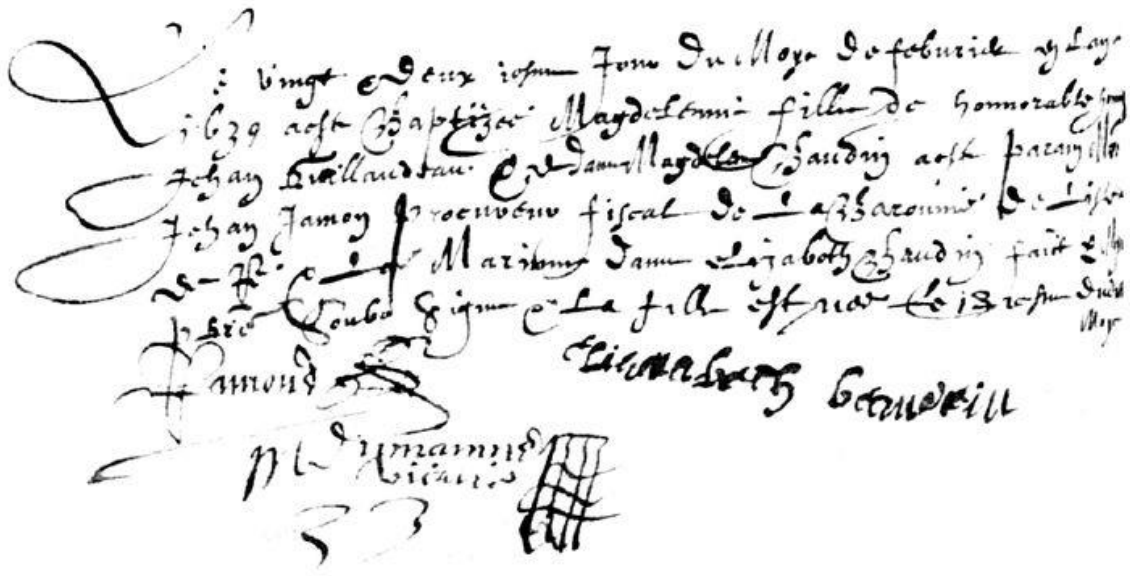 Le vingt & deux iesme Jour du Moys de febvrier en Lan
1639 a este Baptizée Magdelenne fille de honnorable home
Jehan Guillaudeau & de dame Magdelene Baudin a este parain Me
Jehan Jamon Procureur fiscal de La Baronnie de L'isle
de Ré & La Marinne dame Elizabeth Baudin faict par Moy
Pbre Soubs Signé & La fille est née Le 18 iesme dudit
Moys
Jamon
Elisabeth
Vicaire